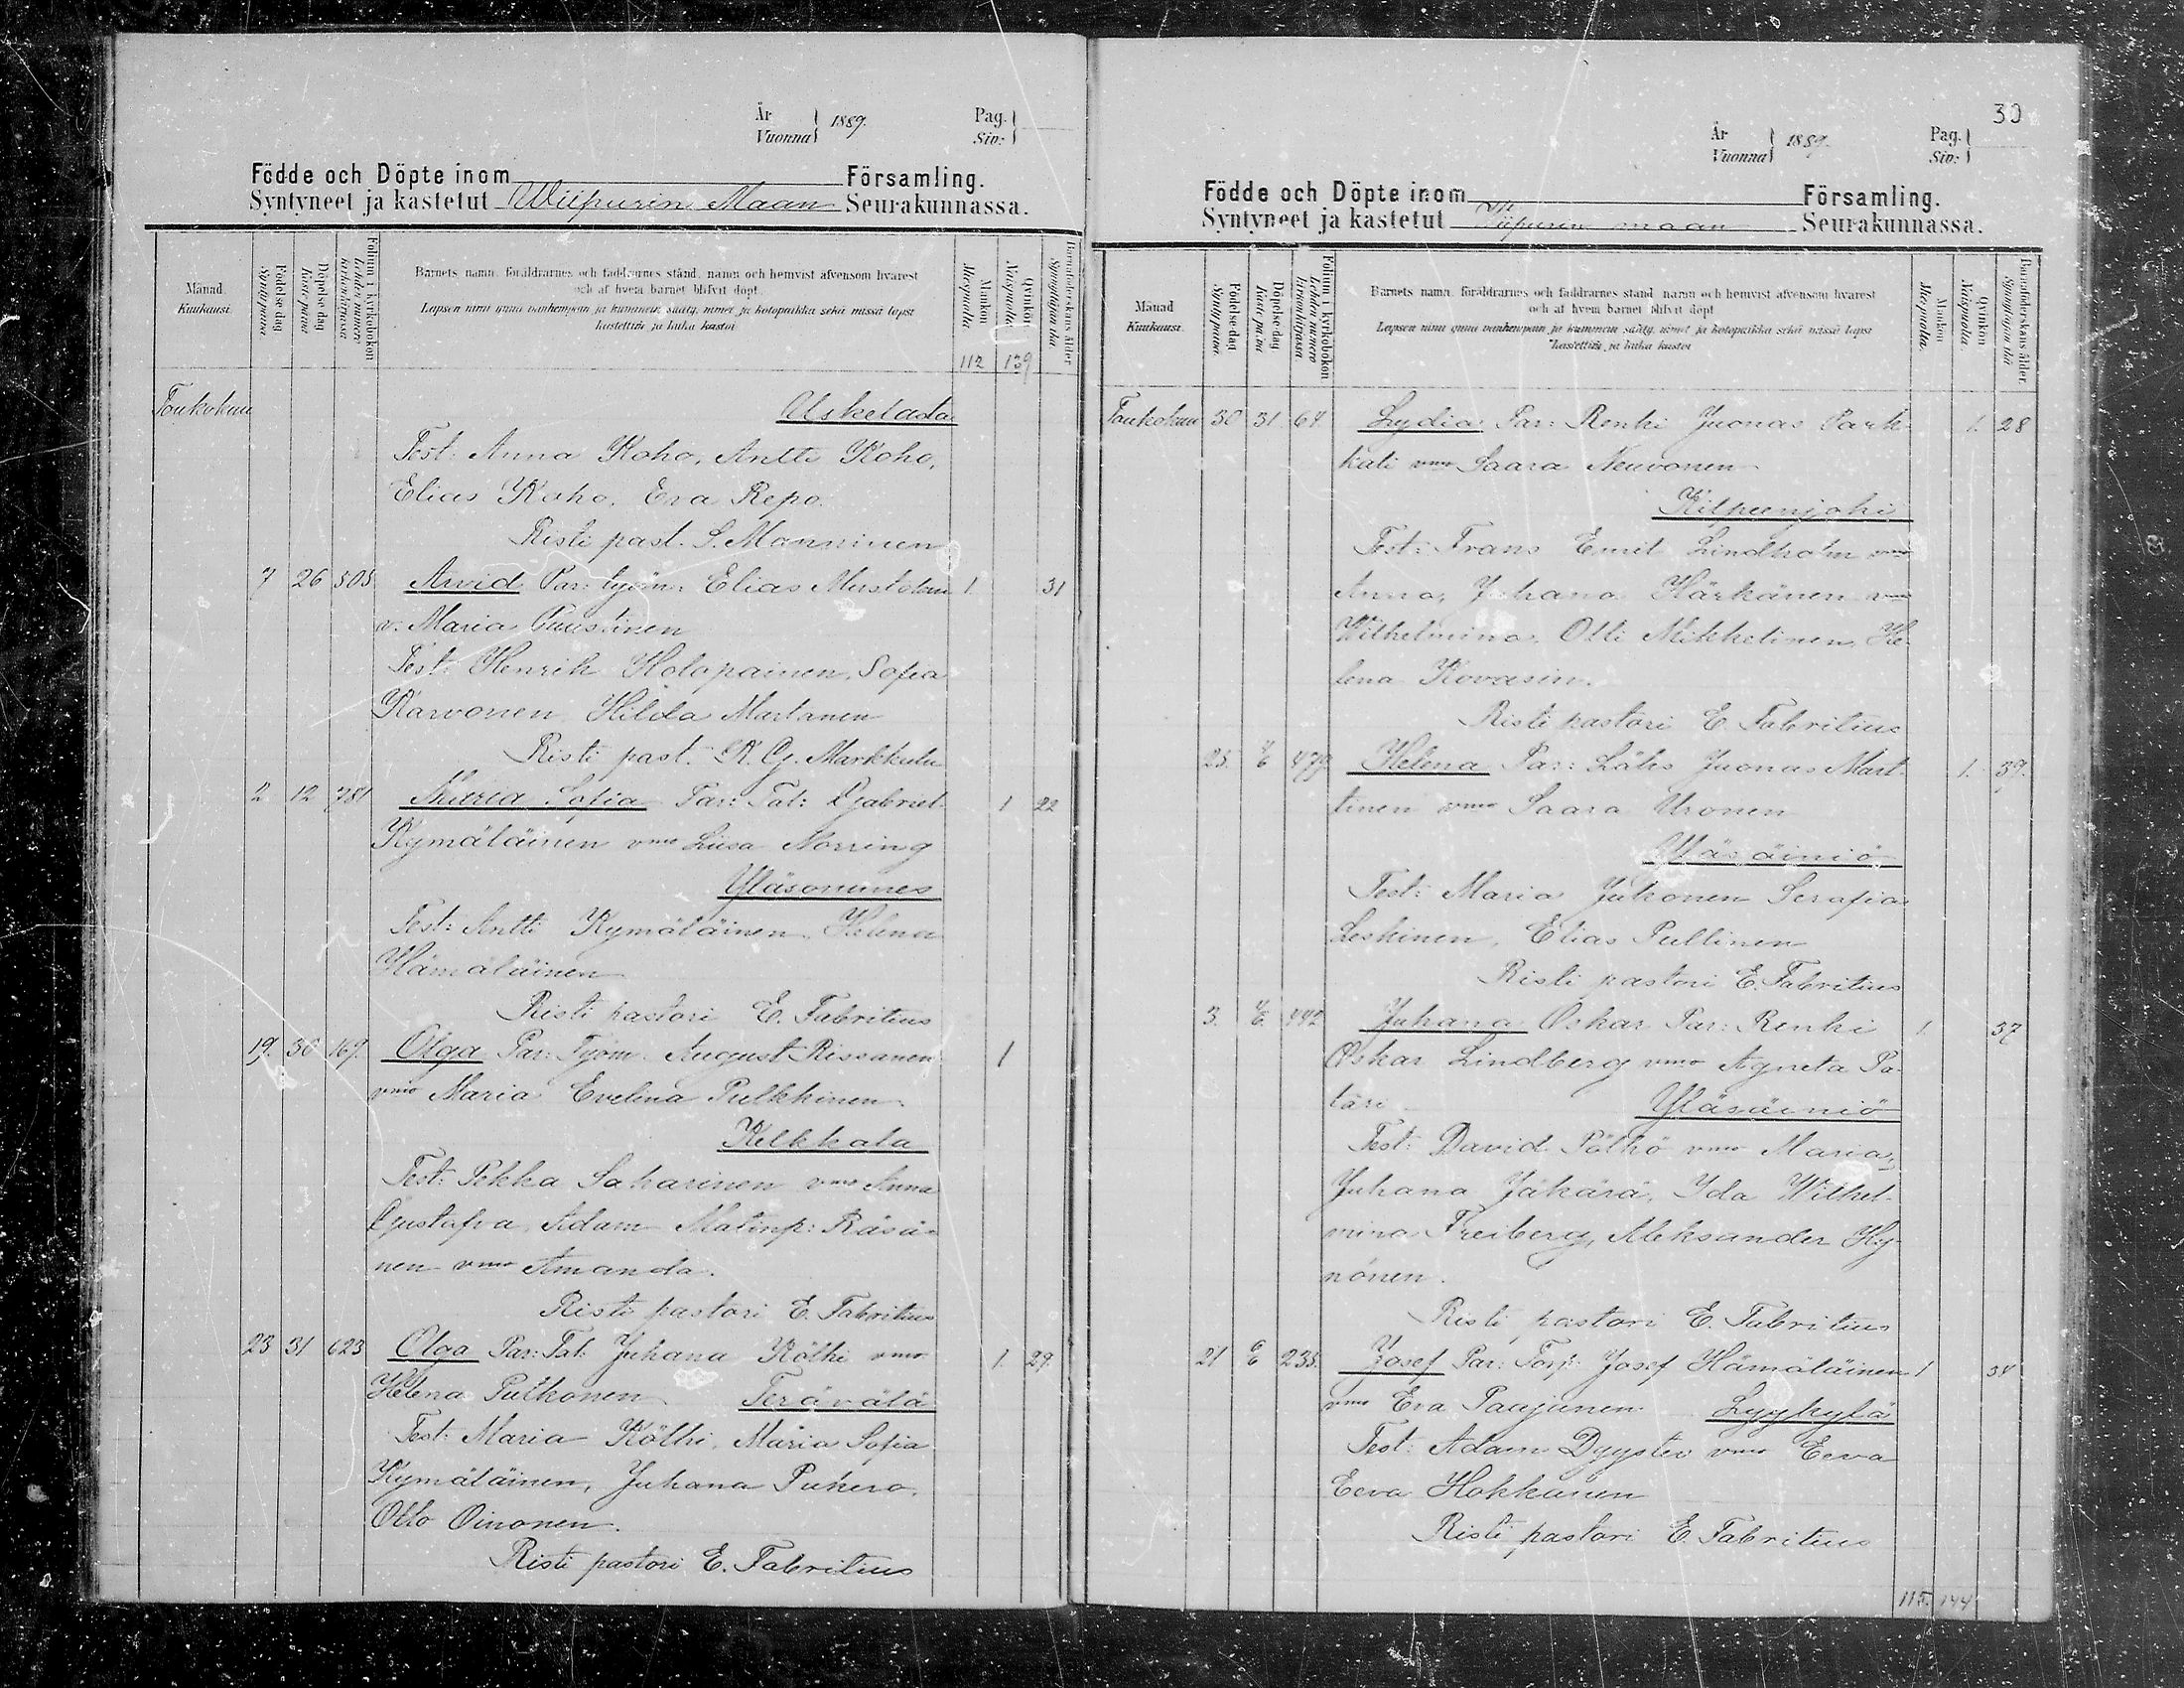 År
Vuonna 1889.
Pag.
Siv:
Födde och Döpte inom Församling.
Syntyneet ja kastetut Wiipurin Maan Seurakunnassa.
Månad.
Kuukausi.
Födelse dag
Syntypäivä
Döpelse dag
Kaste päivä
Folium i kyrkoboken
Lehden numero kirkonkirjassa
Barnets namn, föräldrarnes och faddrarnes stånd, namn och hemvist äfvensom hvarest
och af hvem barnet blifvit döpt.
Lapsen nimi ynnä vanhempain ja kummein sääty, nimet ja kotopaikka sekä missä lapsi
kastettiin ja kuka kastoi
Mankön
Miespuolia
Qvinkön
Naispuolia
Barnaföderskans ålder
Synnyttäjän ikä
112 139
Toukokuu Alsketasta
Test: Anna Koho, Antti Koho,
Elias Koho, Eva Repo.
Risti past. S. Manninen
7 26 505 Arvid Par: työm. Elias Mustonen 1 31
v. Maria Puustinen
Test: Henrik Holopainen, Sofia
Karvonen, Hilda Martanen
Risti past. K. G. Markkula
2 12 781 Maria Sofia Par: Tal: Gabriel 1 22
Kymäläinen vmo Liisa Norring
Yläsommes
Test: Antti Kymäläinen, Helena
Hämäläinen
Risti pastori E. Fabritius
19. 30 169. Olga Par: Työm. August Rissanen 1
vmo Maria Evelina Pulkkinen.
Kelkkala
Test: Pekka Saharinen vmo Anna
Gustafva, Adam Matinp: Räsä-
nen vmo Amanda.
Risti pastori E. Fabritius
23 31 623 Olga Par: Tal: Juhana Kölhi vmo 1. 29.
Helena Putkonen Terävälä
Test: Maria Kölhi, Maria Sofia
Kymäläinen, Juhana Pukero,
Otto Oinonen.
Risti pastori E. Fabritius
30
År
Vuonna 1889.
Pag.
Siv:
Födde och Döpte inom Församling.
Syntyneet ja kastetut Viipurin maan Seurakunnassa.
Månad
Kuukausi.
Födelse dag
Syntypäivä.
Döpelse dag
Kaste päivä
Folium i kyrkoboken
Lehden numero kirkonkirjassa
Barnets namn, föräldrarnes och faddrarnes stånd, namn och hemvist äfvensom hvarest
och af hvem barnet blifvit döpt
Lapsen nimi ynnä vanhempain ja kummein sääty, nimet ja kotopaikka sekä missä lapsi
kastettiin ja kuka kastoi
Mankön
Miespuolia.
Qvinkön
Naispuolia.
Barnaföderskans ålder.
Synnyttäjän ikä
Toukokuu 30 31 64 Lydia Par: Renki Juonas Park- 1. 28
kali vmo Saara Neuvonen
Kilpeenjoki
Test: Frans Emil Lindholm vmo
Anna, Juhana Härkänen vmo
Wilhelmina, Olli Mikkelinen, He-
lena Kovasin.
Risti pastori E. Fabritius
25. 479 Helena Par: Läks Juonas Mart- 1. 39.
tinen vmo Saara Uronen
Yläsäiniö
Test: Maria Juhonen Serafia
Leskinen, Elias Pullinen
Risti pastori E. Fabritius
3. 442 Juhana Oskar Par: Renki 1. 37
Oskar Lindberg vmo Agneta Pa-
täri Yläsäiniö
Test: David Pölhö vmo Maria,
Juhana Jäkärä, Ida Wilhel-
mina Freiberg, Aleksander Hy-
nönen.
Risti pastori E. Fabritius
21 235. Josef Par: Torp: Josef Hämäläinen 1 34
vmo Eva Paujunen Lyykylä
Test: Adam Dyyster vmo Eeva
Eeva Hokkanen
Risti pastori E. Fabritius
115. 144